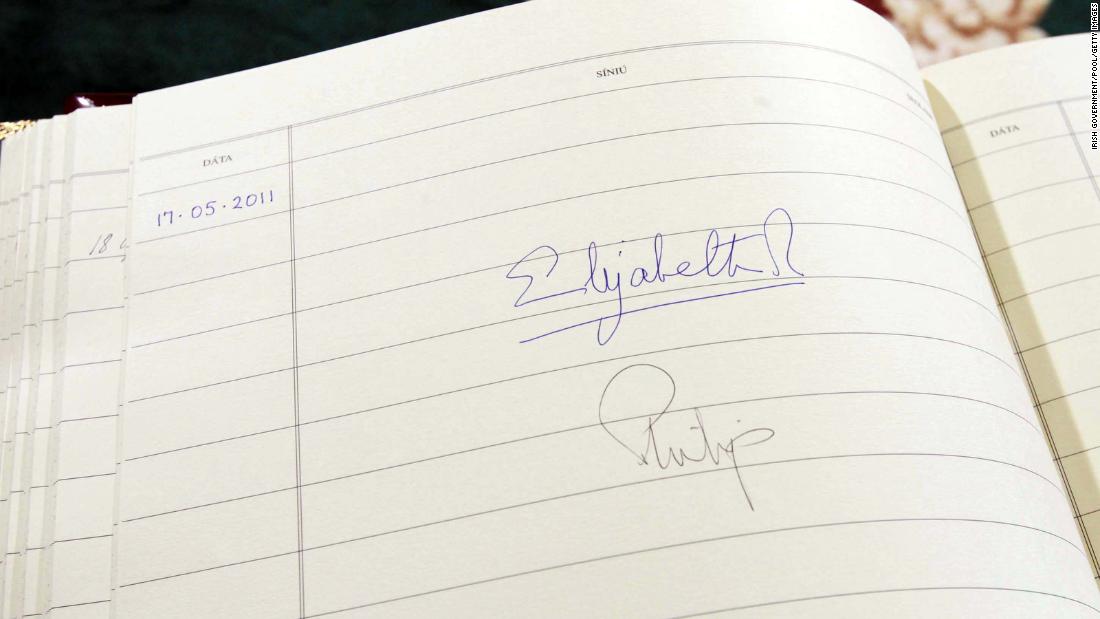 SÍNIÚ
DÁTA
17·05·2011
Elizabeth R
Philip
18
DÁTA
IRISH GOVERNMENT/POOL/GETTY IMAGES